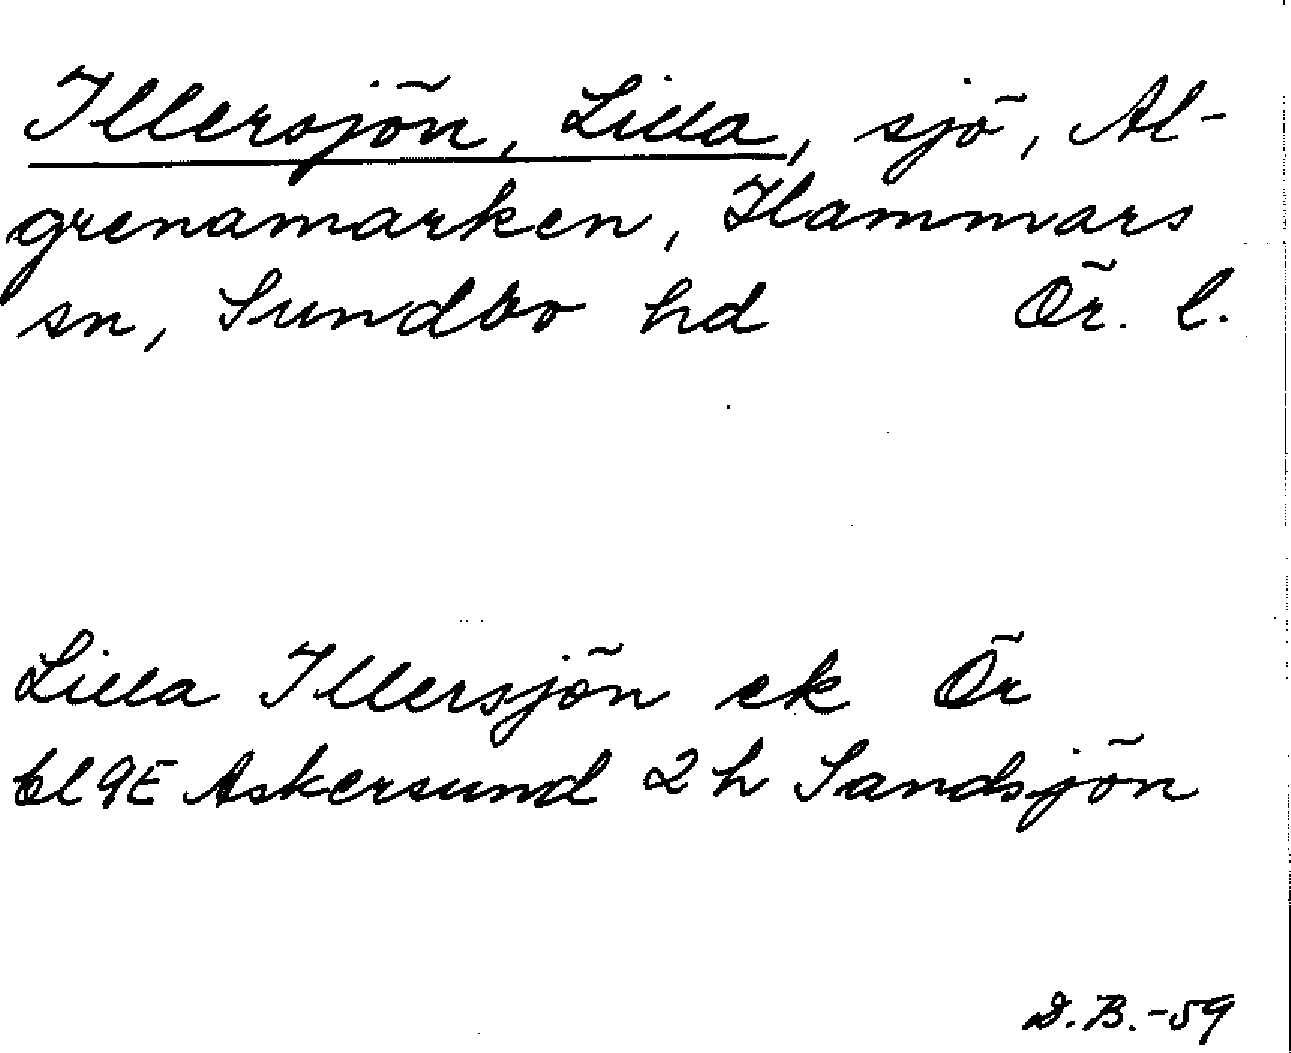 Illersjön, Lilla, sjö, Al-
grenamarken, Hammars
sn, Sundbo hd Ör. l.
Lilla Illersjön ek Ör
bl 9E Askersund 2 h Sandsjön
D.B.-59